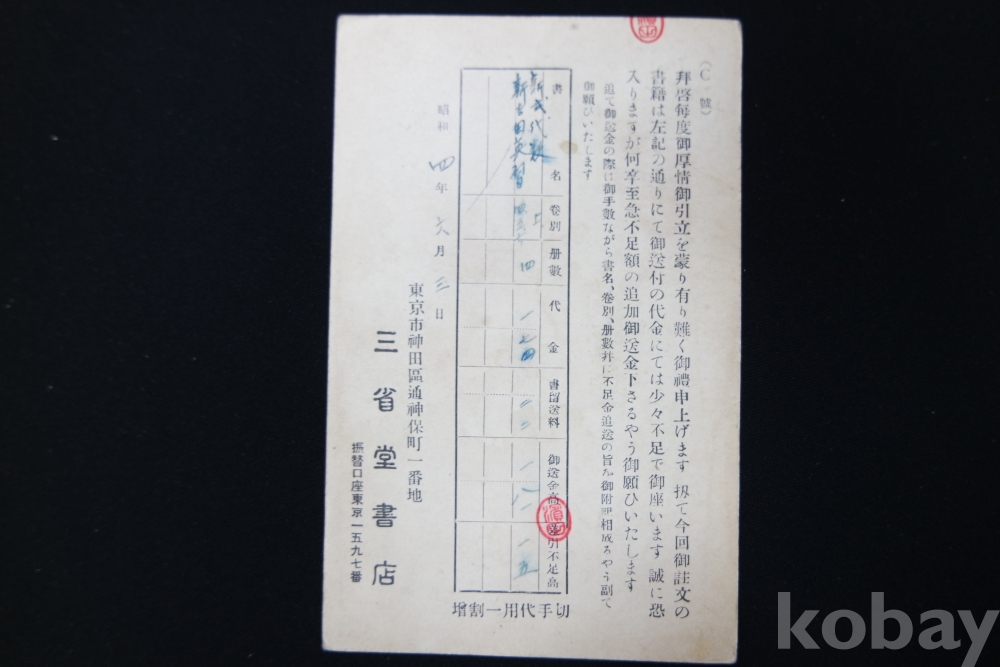 (C 號)
拜啓每度御厚情御引立を蒙り有り難く御禮申上げます 扨て今回御註文の
書籍は左記の通りにて御送付の代金にては少々不足で御座います 誠に恐
入りますが何卒至急不足額の追加御送金下さるやう御願ひいたします
追て御送金の際に御手數ながら書名、卷別、册數幷に不足金追送の旨を御附記相成るやう副て
御願ひいたします
書名 卷別 册數 代金 書留送料 御送金高 差引不足高
新式代數 上
新吉田英習 四 一七四 二二 一八一 一五
切手代用一割增
昭和四年六月三日
東京市神田區通神保町一番地
三省堂書店
振替口座東京一五九七番
濱田
kobay